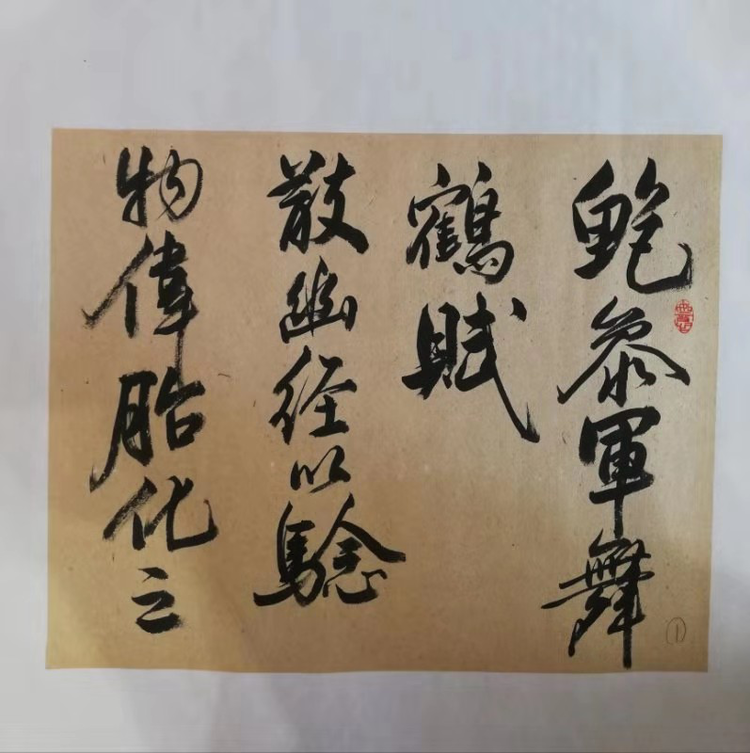 鮑叅軍舞
鶴賦
散幽経以騐
物偉胎化之
①